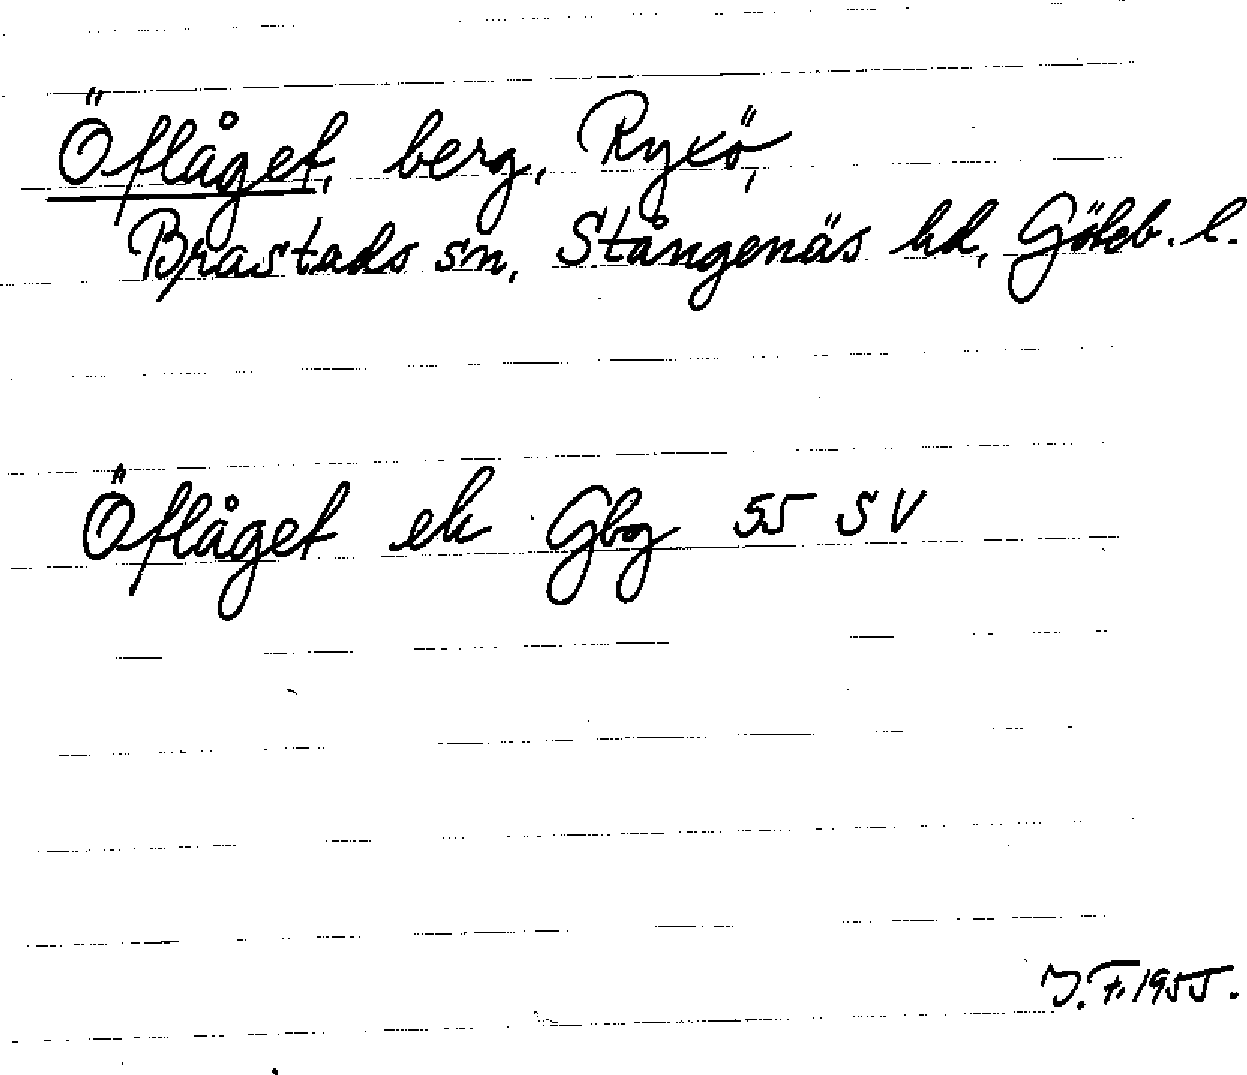 Öflåget, berg, Ryxö,
Brastads sn, Stångenäs hd, Göteb. l.
Öflåget ek Gbg 55 SV
J. F. 1955.